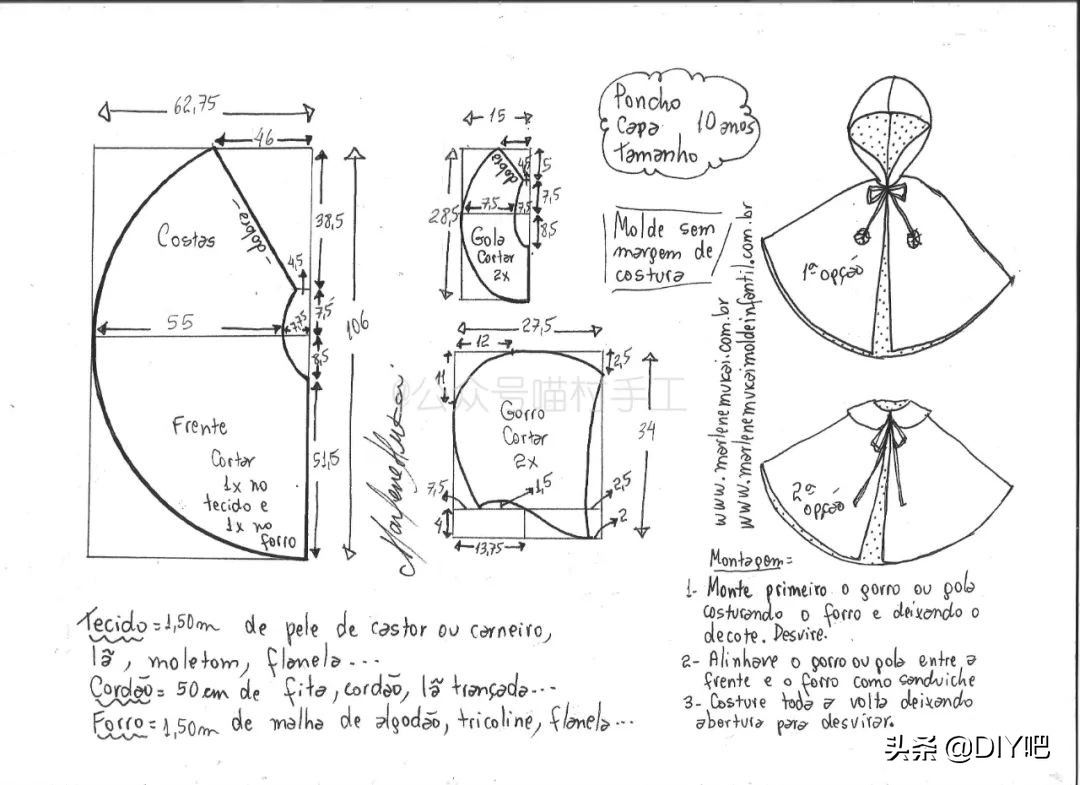 62,75
46
Costas
-dobra-
38,5
4,5
7,5
7,75
55
106
8,5
Frente
Cortar
1x no
tecido e
1x no
forro
51,5
15
dobra
4,5
5
7,5
7,5
7,5
28,5
8,5
Gola
Cortar
2x
Poncho
Capa 10 anos
tamanho
Molde sem
margem de
costura
27,5
12
2,5
11
Gorro
Cortar
2x
34
7,5
1,5
2,5
4
2
13,75
Marlene Mukai
www.marlenemukai.com.br
www.marlenemukaimoldeinfantil.com.br
1ª opção
2ª
opção
@公众号喵村手工
Tecido = 1,50m de pele de castor ou carneiro,
lã, moletom, flanela...
Cordão = 50 cm de fita, cordão, lã trançada...
Forro = 1,50m de malha de algodão, tricoline, flanela...
Montagem =
1- Monte primeiro o gorro ou gola
costurando o forro e deixando o
decote. Desvire.
2- Alinhave o gorro ou gola entre a
frente e o forro como sanduiche
3- Costure toda a volta deixando
abertura para desvirar.
头条 @DIY吧